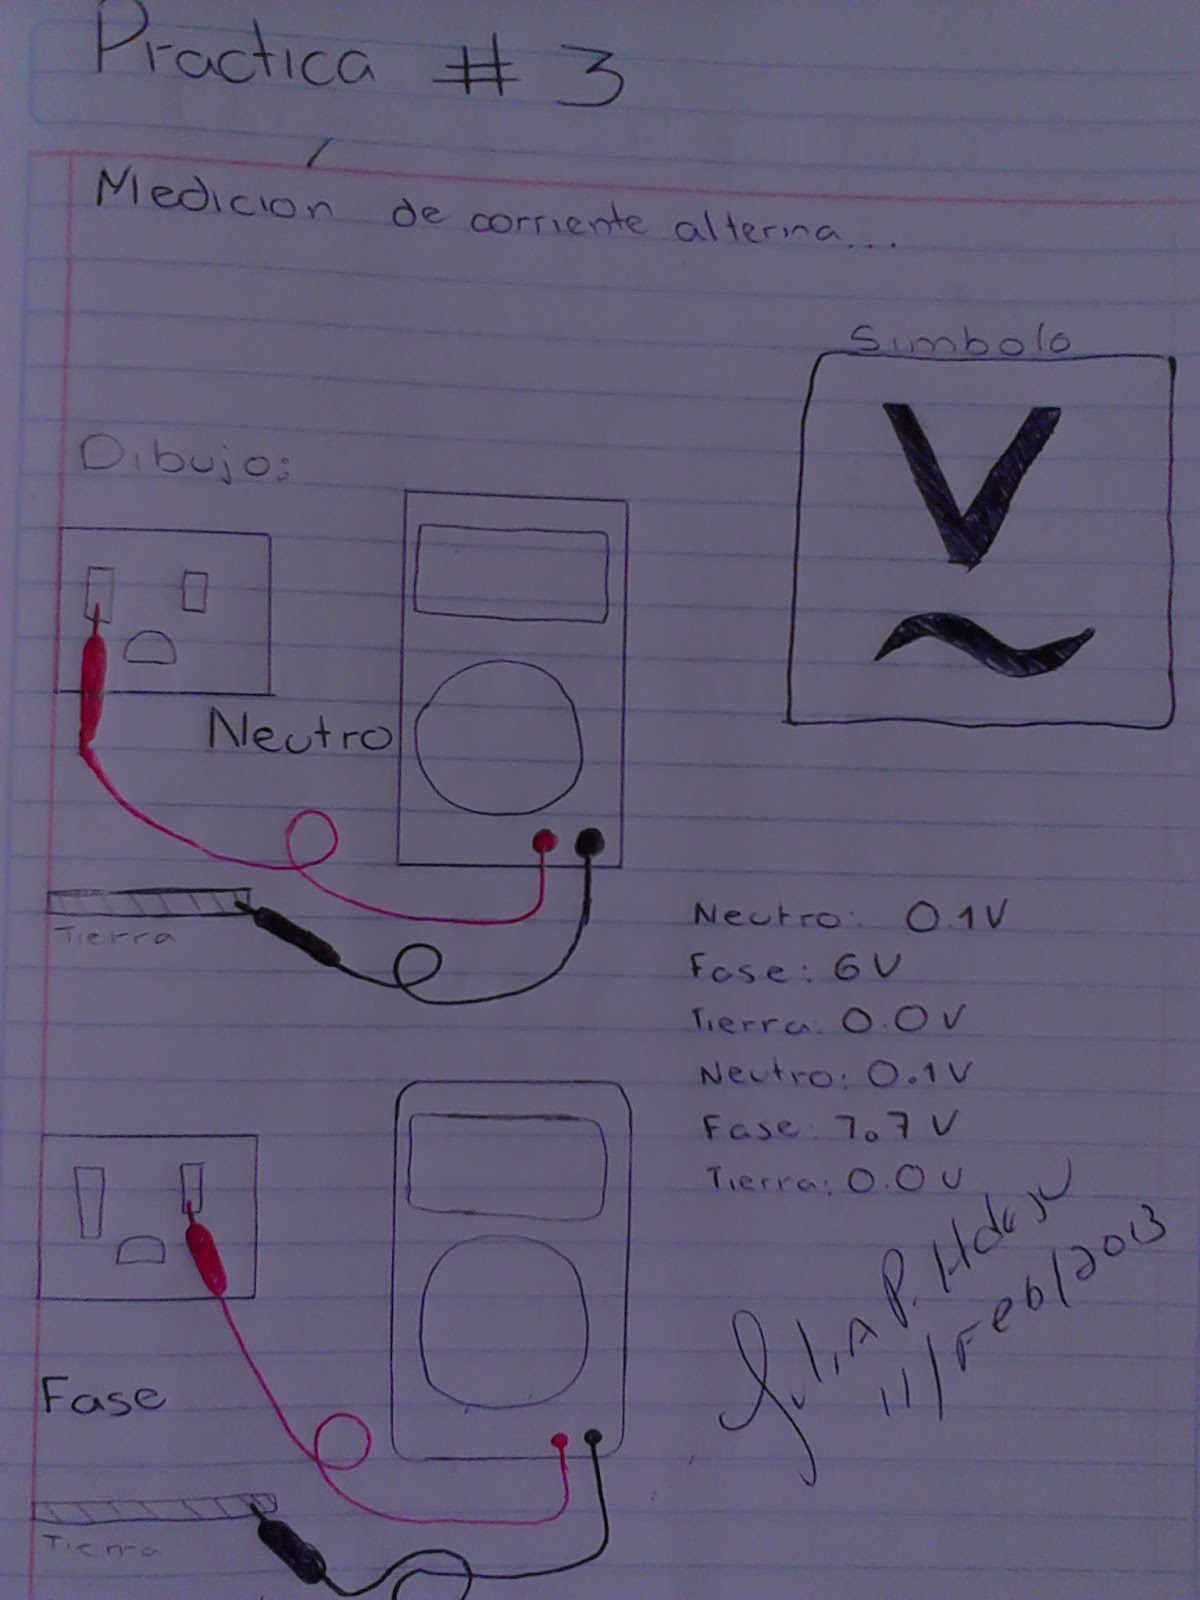 Practica # 3
Medición de corriente alterna...
Simbolo
V
~
Dibujo:
Neutro
Tierra
Neutro: 0.1V
Fase: 6V
Tierra: 0.0V
Neutro: 0.1V
Fase: 7.7V
Tierra: 0.0V
11/Feb/2013
Fase
Tierra